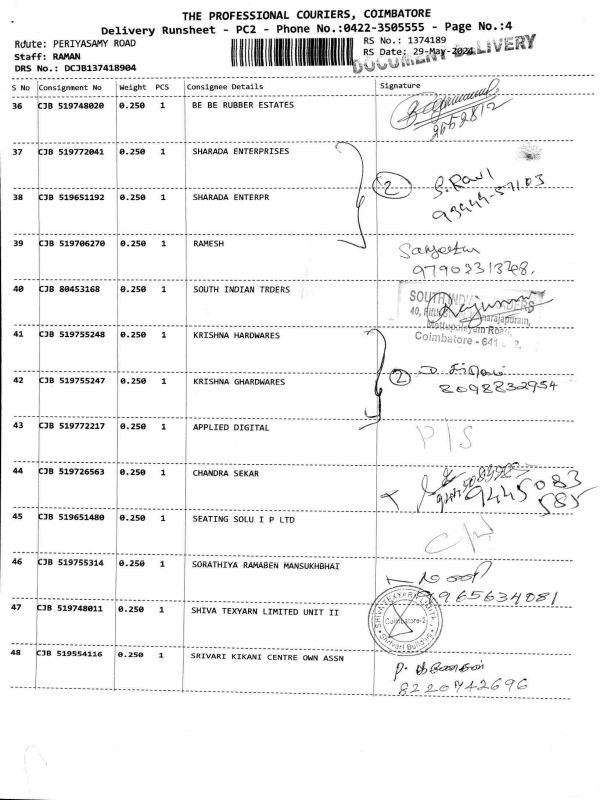 THE PROFESSIONAL COURIERS, COIMBATORE
Delivery Runsheet - PC2 - Phone No.:0422-3505555 - Page No.:4
Route: PERIYASAMY ROAD
RS No.: 1374189
Staff: RAMAN
RS Date: 29-May-2024
DOCUMENT DELIVERY
DRS No.: DCJB137418904
S No Consignment No Weight PCS Consignee Details Signature
36 CJB 519748020 0.250 1 BE BE RUBBER ESTATES
2652812
37 CJB 519772041 0.250 1 SHARADA ENTERPRISES
2 S. Ravi
38 CJB 519651192 0.250 1 SHARADA ENTERPR
93444-57103
39 CJB 519706270 0.250 1 RAMESH
40 CJB 80453168 0.250 1 SOUTH INDIAN TRDERS
SOUTH INDIAN TRADERS
Coimbatore - 641
41 CJB 519755248 0.250 1 KRISHNA HARDWARES
42 CJB 519755247 0.250 1 KRISHNA GHARDWARES
2
8098832954
43 CJB 519772217 0.250 1 APPLIED DIGITAL
P/S
44 CJB 519726563 0.250 1 CHANDRA SEKAR
9445083
585
45 CJB 519651480 0.250 1 SEATING SOLU I P LTD
46 CJB 519755314 0.250 1 SORATHIYA RAMABEN MANSUKHBHAI
9965634081
47 CJB 519748011 0.250 1 SHIVA TEXYARN LIMITED UNIT II
SHIVA TEXYARN
Coimbatore-2
Srivari Building
48 CJB 519554116 0.250 1 SRIVARI KIKANI CENTRE OWN ASSN
8220742696